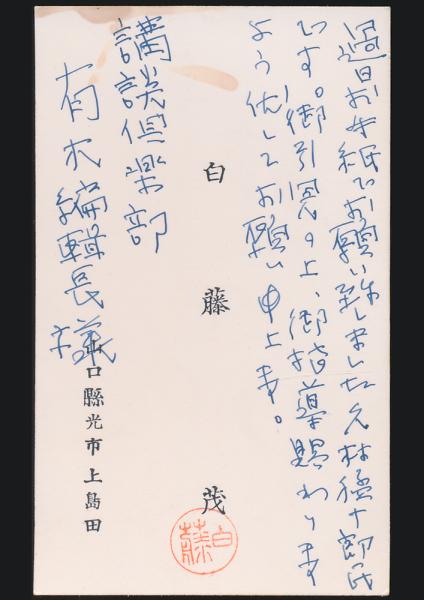 過日お手紙でお願い致しました久林猛十郎氏
です。御引見の上、御指導賜わります
よう伏してお願い申上ます。
白藤茂
白藤
講談倶楽部
有木編輯長様
山口縣光市上島田